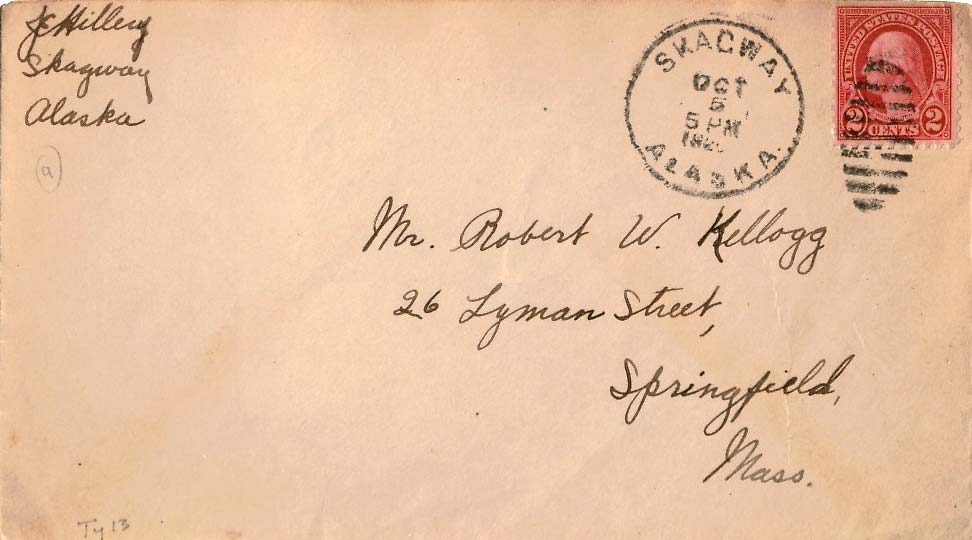 Skagway
Alaska
a
SKAGWAY
OCT
5
5 PM
ALASKA.
UNITED STATES POSTAGE
2 CENTS 2
Mr. Robert W. Kellogg
26 Lyman Street,
Springfield,
Mass.
Ty 13